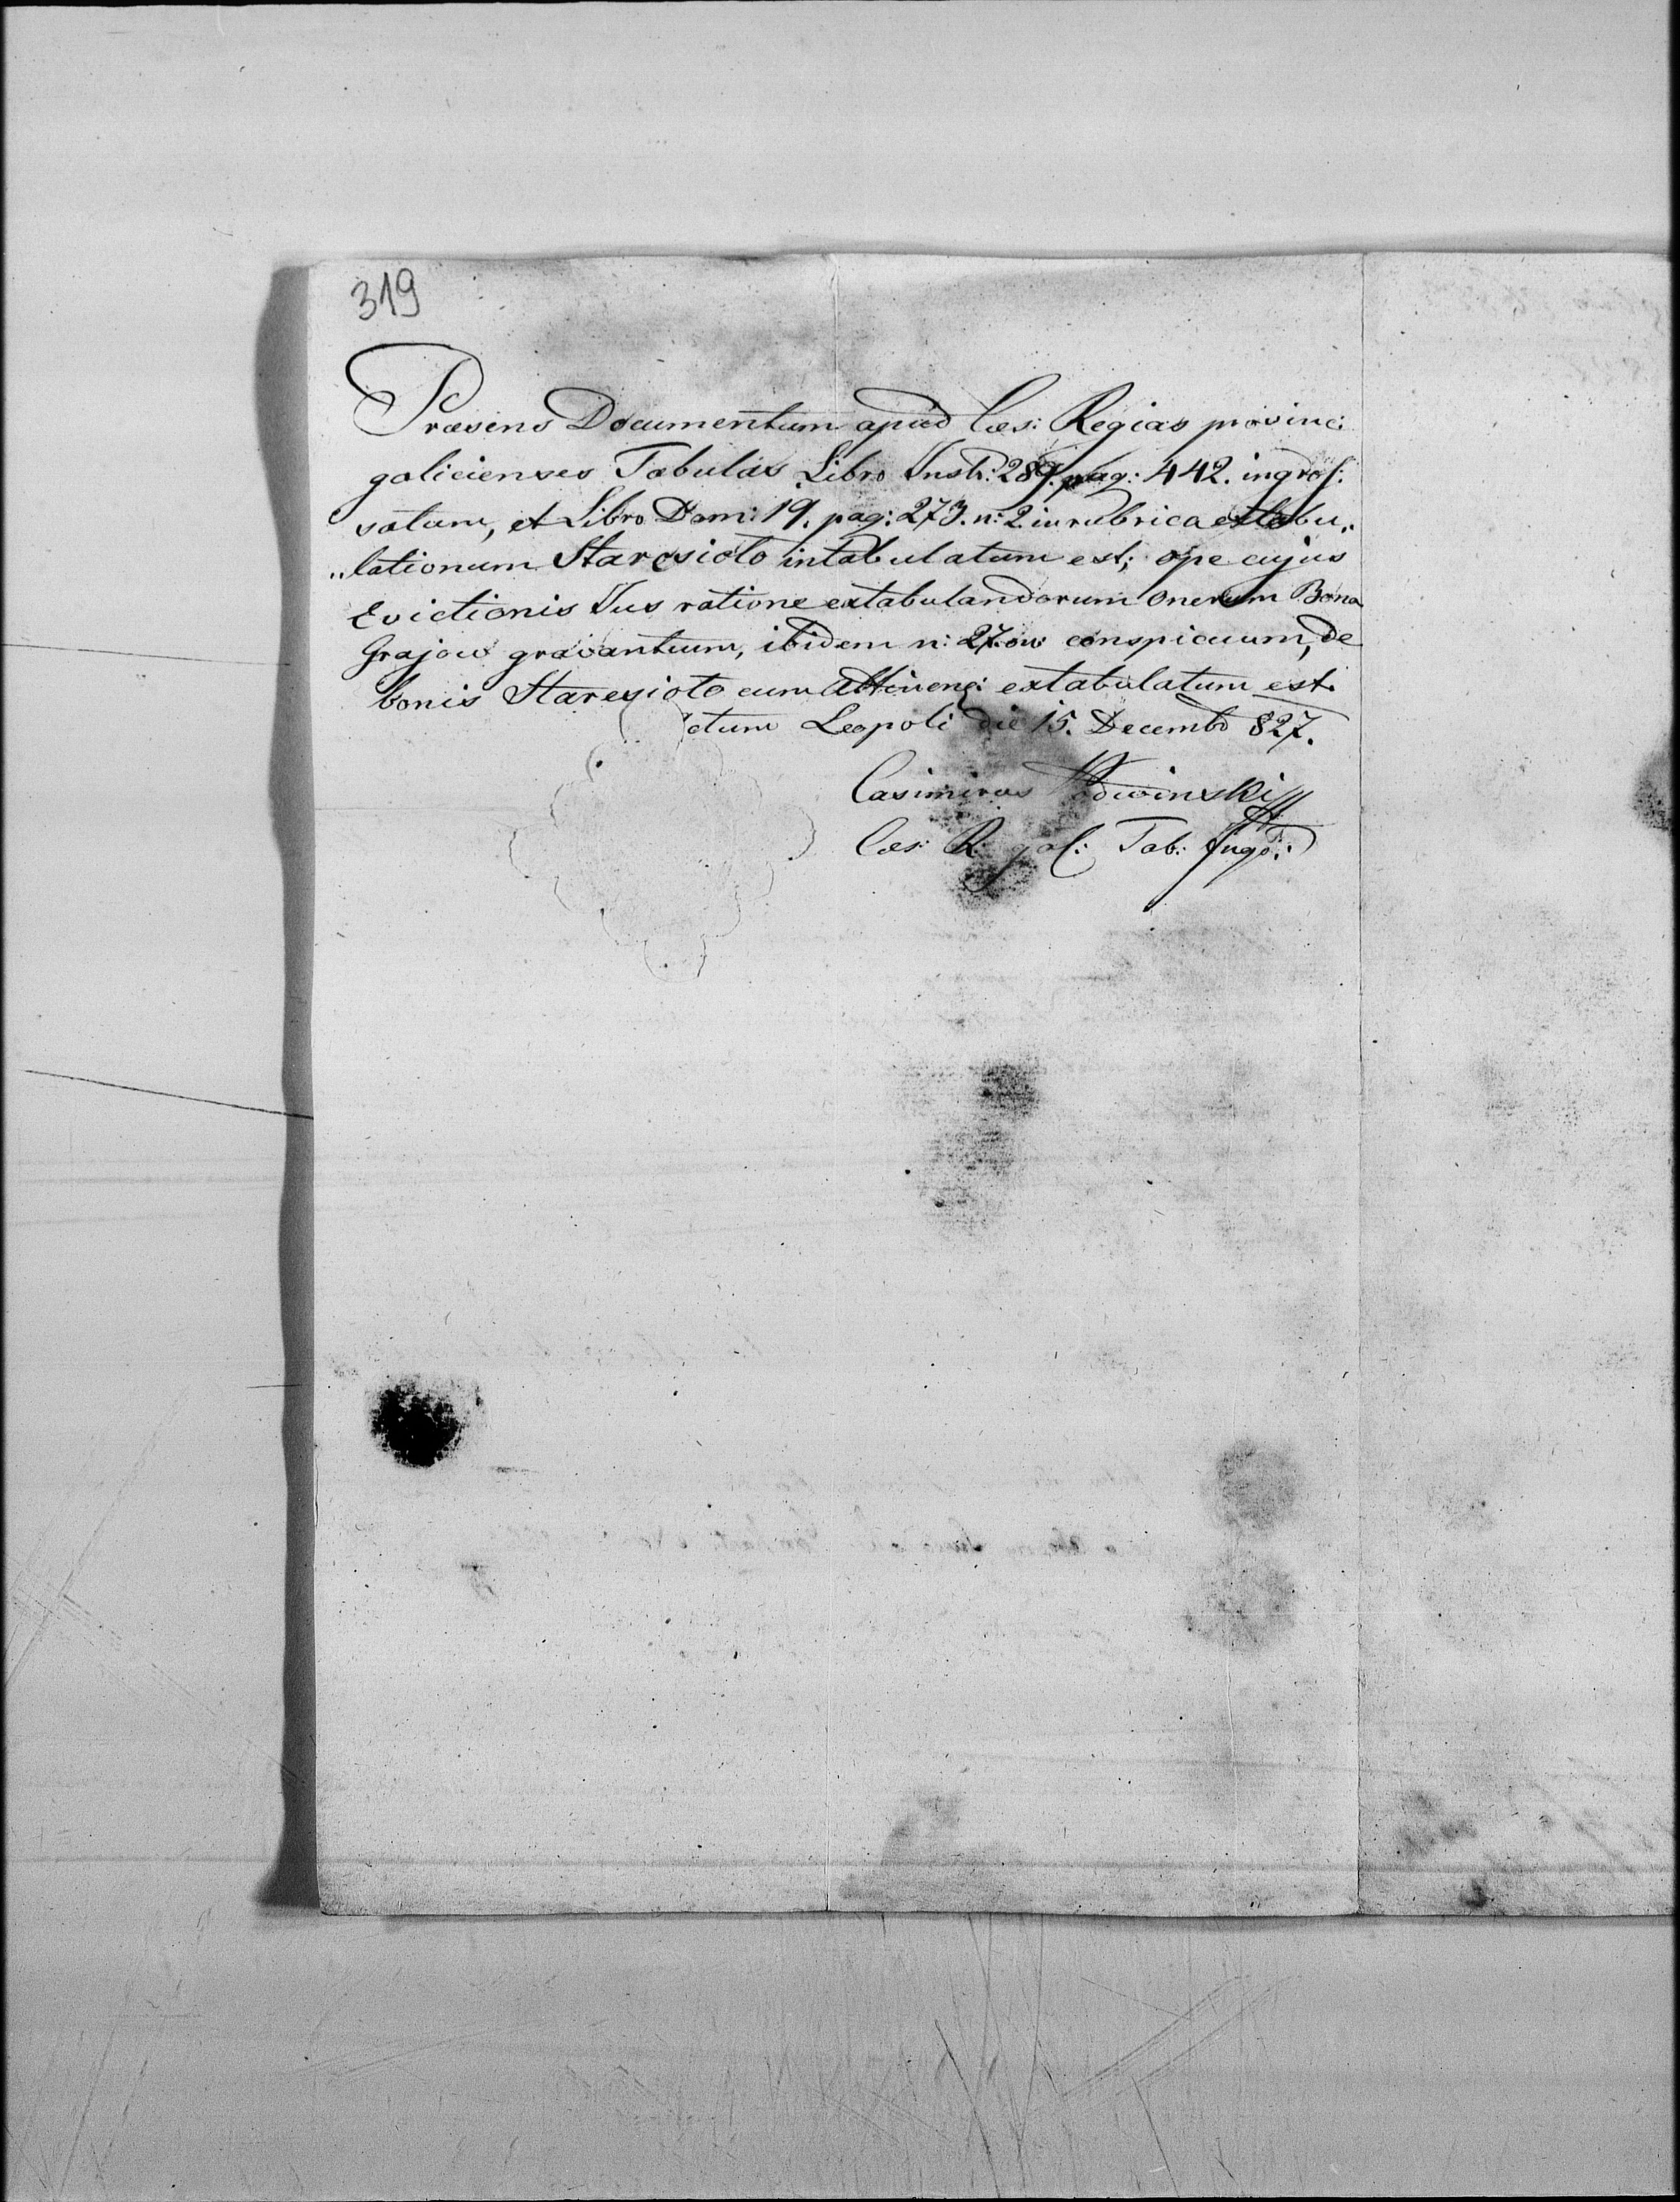 319
Præsens Documentum apud Cæs: Regias provinc:
galicienses Tabulas Libro Instr: 289. pag: 442. ingros:
satum, et Libro Dom: 19. pag: 273. n: 2. in rubrica extabu„
„lationum Staresioło intabulatum est; ope cujus
Evictionis Jus ratione extabulandorum onerum Bona
Grajow gravantium, ibidem n: 27. on: conspicuum, de
bonis Staresioło cum Attinenc: extabulatum est.
ctum Leopoli die 15. Decembr 827.
Casimirus
Cæs: R: gal: Tab: Ingr: